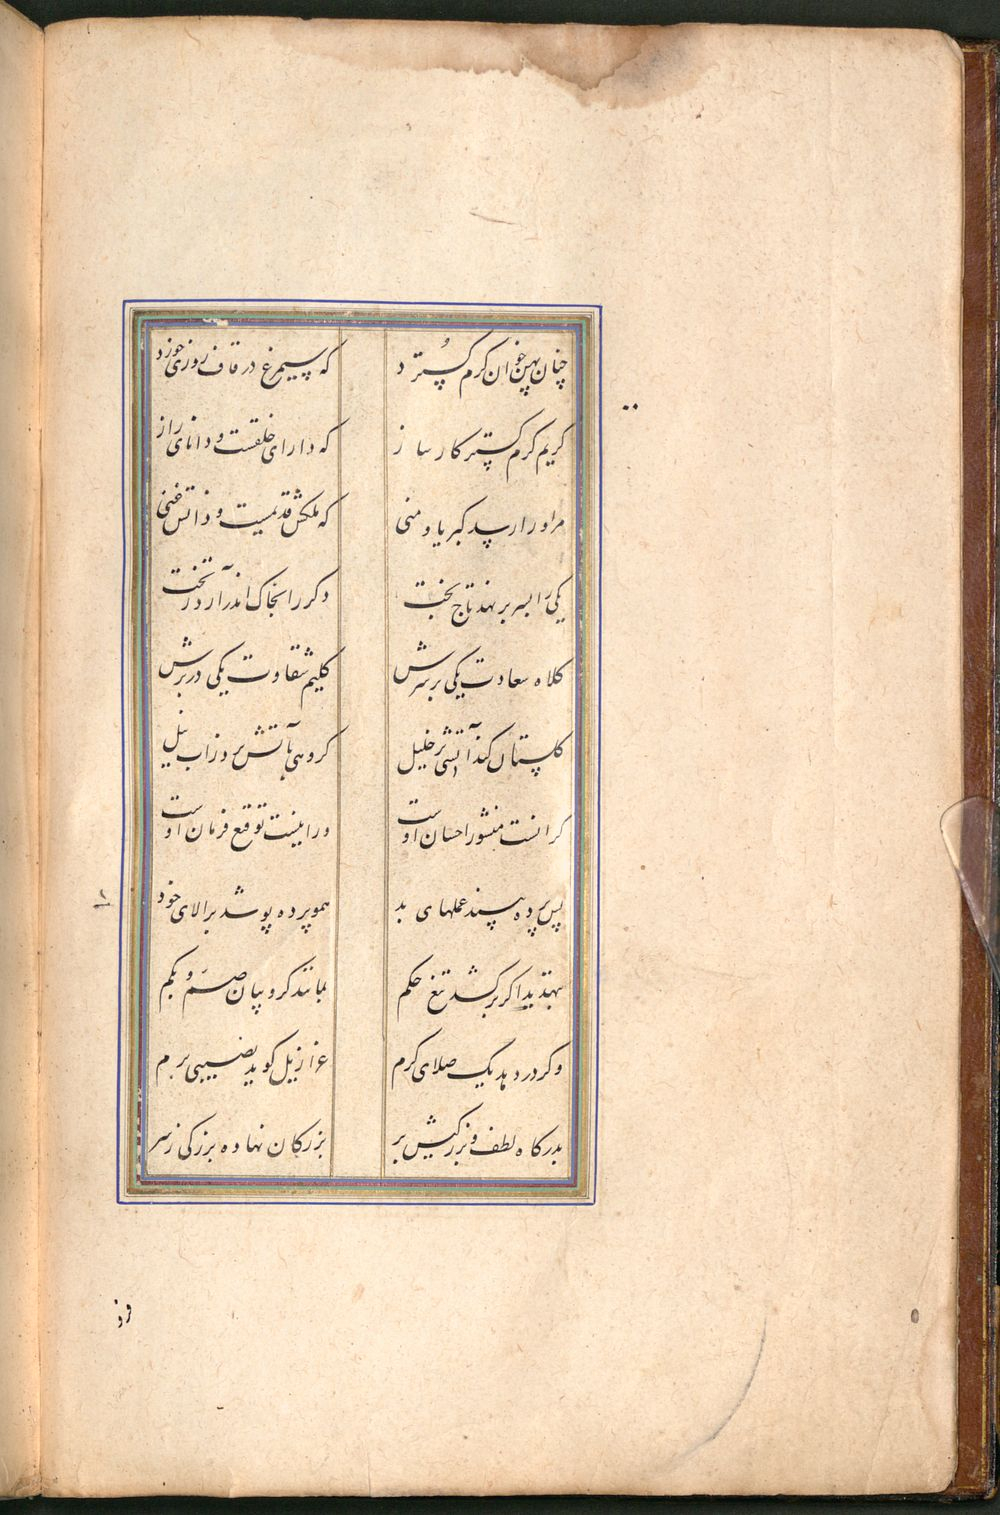 چنان پهن خوان کرم گسترد که سیمرغ در قاف روزی خورد
کریم کرم گستر کارساز که دارای خلقست و دانای راز
مر او را رسد کبریا و منی که ملکش قدیمست و ذاتش غنی
یکی را بسر بر نهد تاج بخت دکر را بخاک اندر آرد ز تخت
کلاه سعادت یکی بر سرش کلیم شقاوت یکی در برش
کلستان کند آتشی بر خلیل کروهی بآتش برد ز اب نیل
کر آنست منشور احسان اوست ور اینست توقیع فرمان اوست
پس پرده بیند عملهای بد همو پرده پوشد بر الای خود
بتهدید اکر برکشد تیغ حکم بمانند کروبیان صم و بکم
وکر در دهد یک صلای کرم عزازیل کوید نصیبی برم
بدرکاه لطف و بزرکیش بر بزرکان نهاده بزرکی ز سر